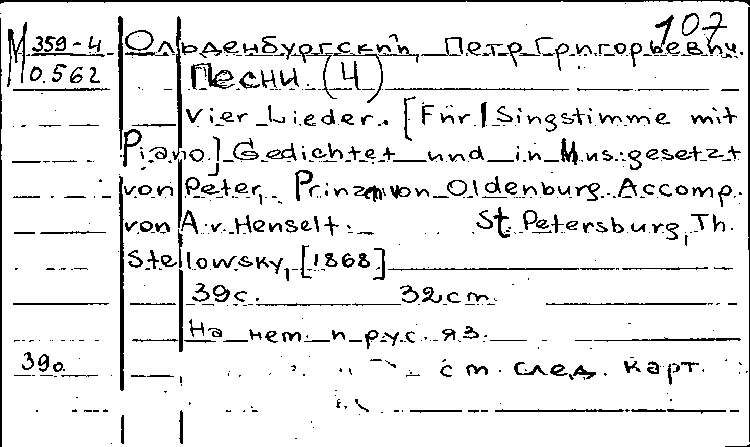 107
М 359-4 Ольденбургский, Петр Григорьевич.
0.562 Песни (4)
Vier Lieder. [Für 1 Singstimme mit
Piano.] Gedichtet und in Mus. gesetzt
von Peter, Prinzen von Oldenburg. Accomp.
von A. v. Henselt. St. Petersburg, Th.
Stellowsky, [1868]
39 с. 32 cm.
На нем. и рус. яз.
390 см. след. карт.